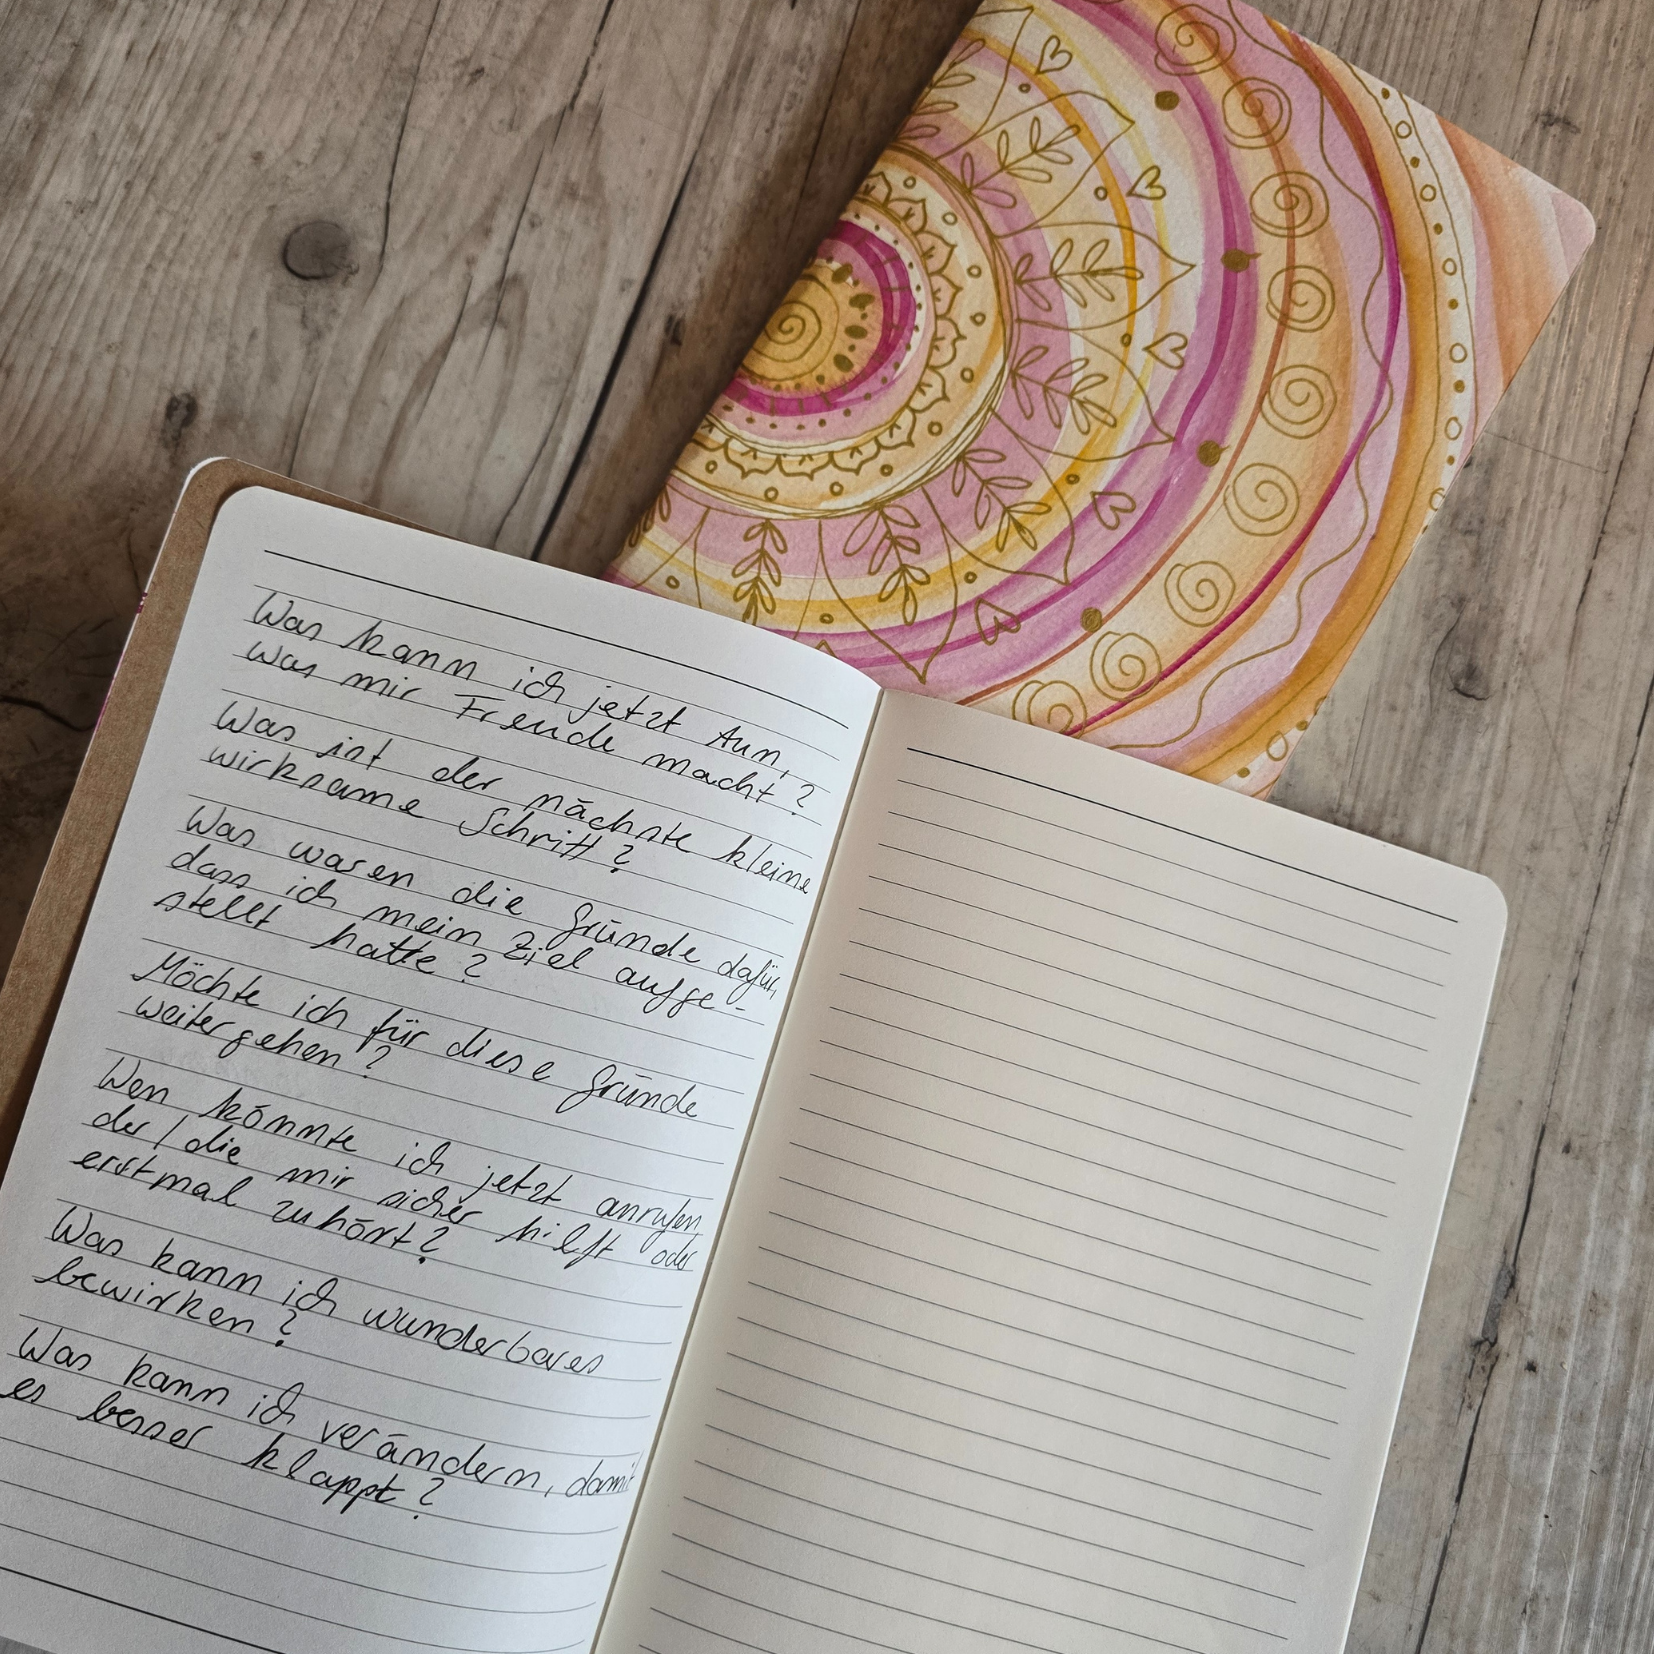 Was kann ich jetzt tun,
was mir Freude macht?
Was ist der nächste kleine
wirksame Schritt?
Was waren die Gründe dafür,
dass ich mein Ziel aufge-
stellt hatte?
Möchte ich für diese Gründe
weitergehen?
Wen könnte ich jetzt anrufen
der/die mir sicher hilft oder
erstmal zuhört?
Was kann ich wunderbares
bewirken?
Was kann ich verändern, damit
es besser klappt?